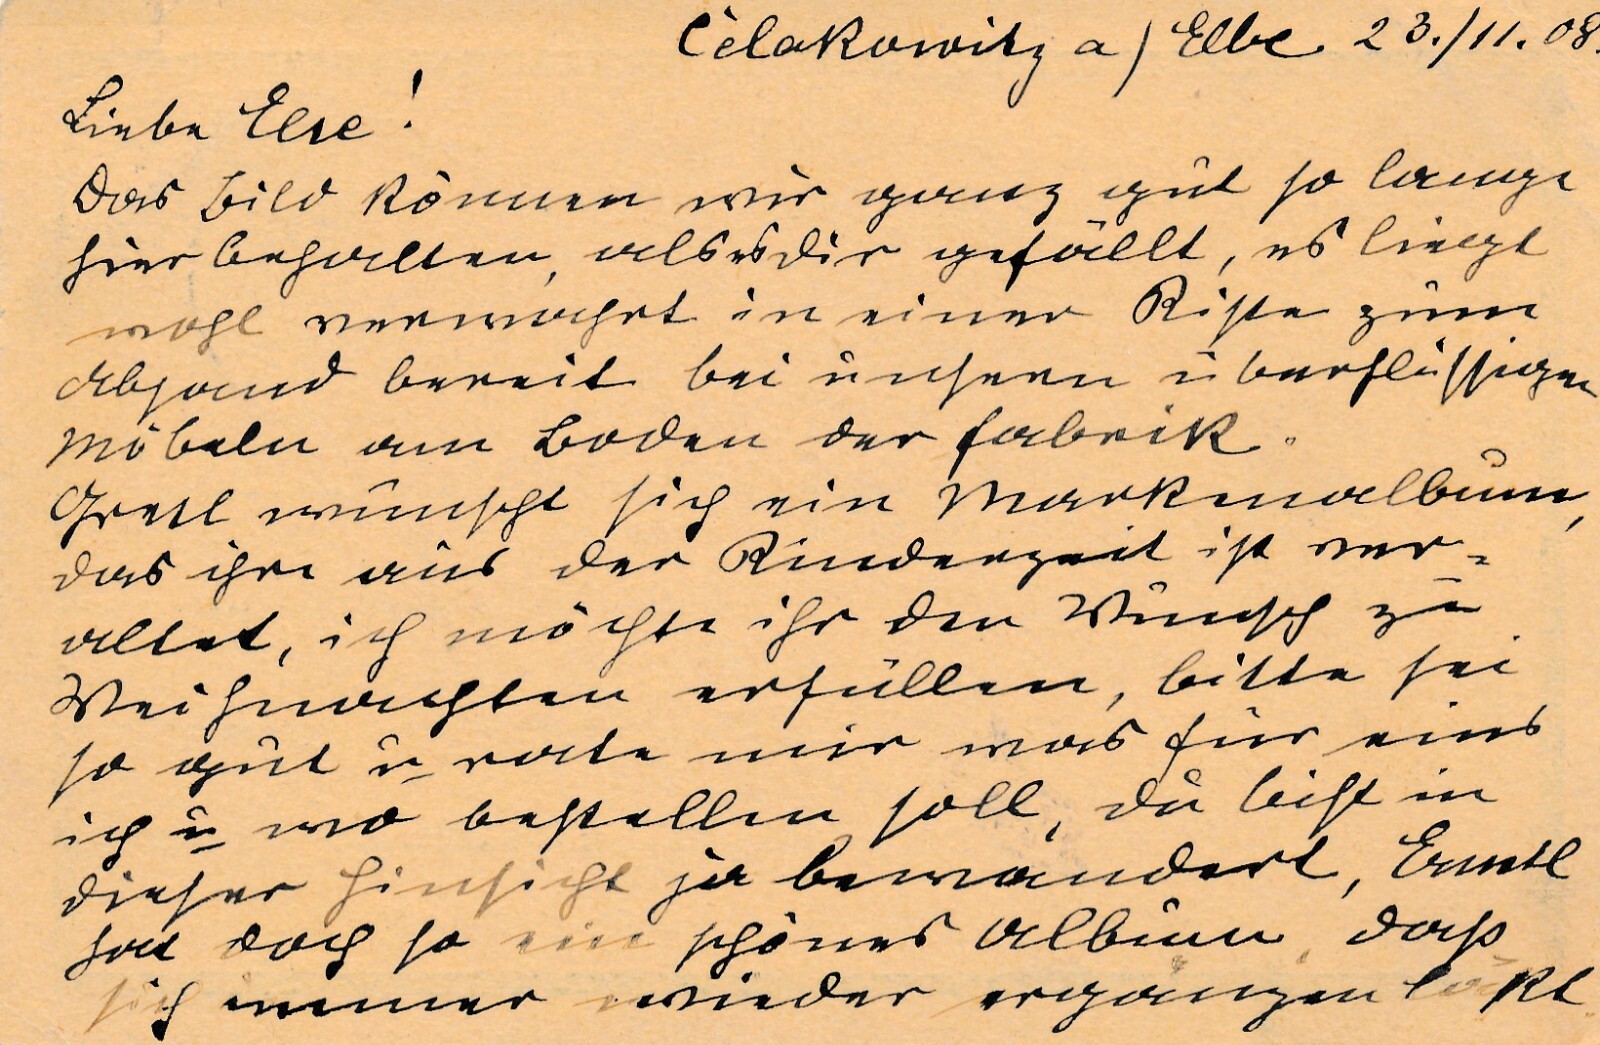 Čelakowitz a/ Elbe 23./11.08.
Liebe Else!
Das Bild können wir ganz gut so lange
hier behalten, als es dir gefällt, es liegt
wohl verwahrt in einer Kiste zum
Absand bereit bei unsern überflüssigen
Möbeln am Boden der Fabrik.
Gretl wünscht sich ein Markenalbum,
das ihre aus der Kinderzeit ist ver-
altet, ich möchte ihr den Wunsch zu
Weihnachten erfüllen, bitte sei
so gut u rate mir was für eins
ich u wo bestellen soll, du bist in
dieser Hinsicht ja bewandert,
hat doch so ein schönes Album, daß
sich immer wieder ergänzen läßt